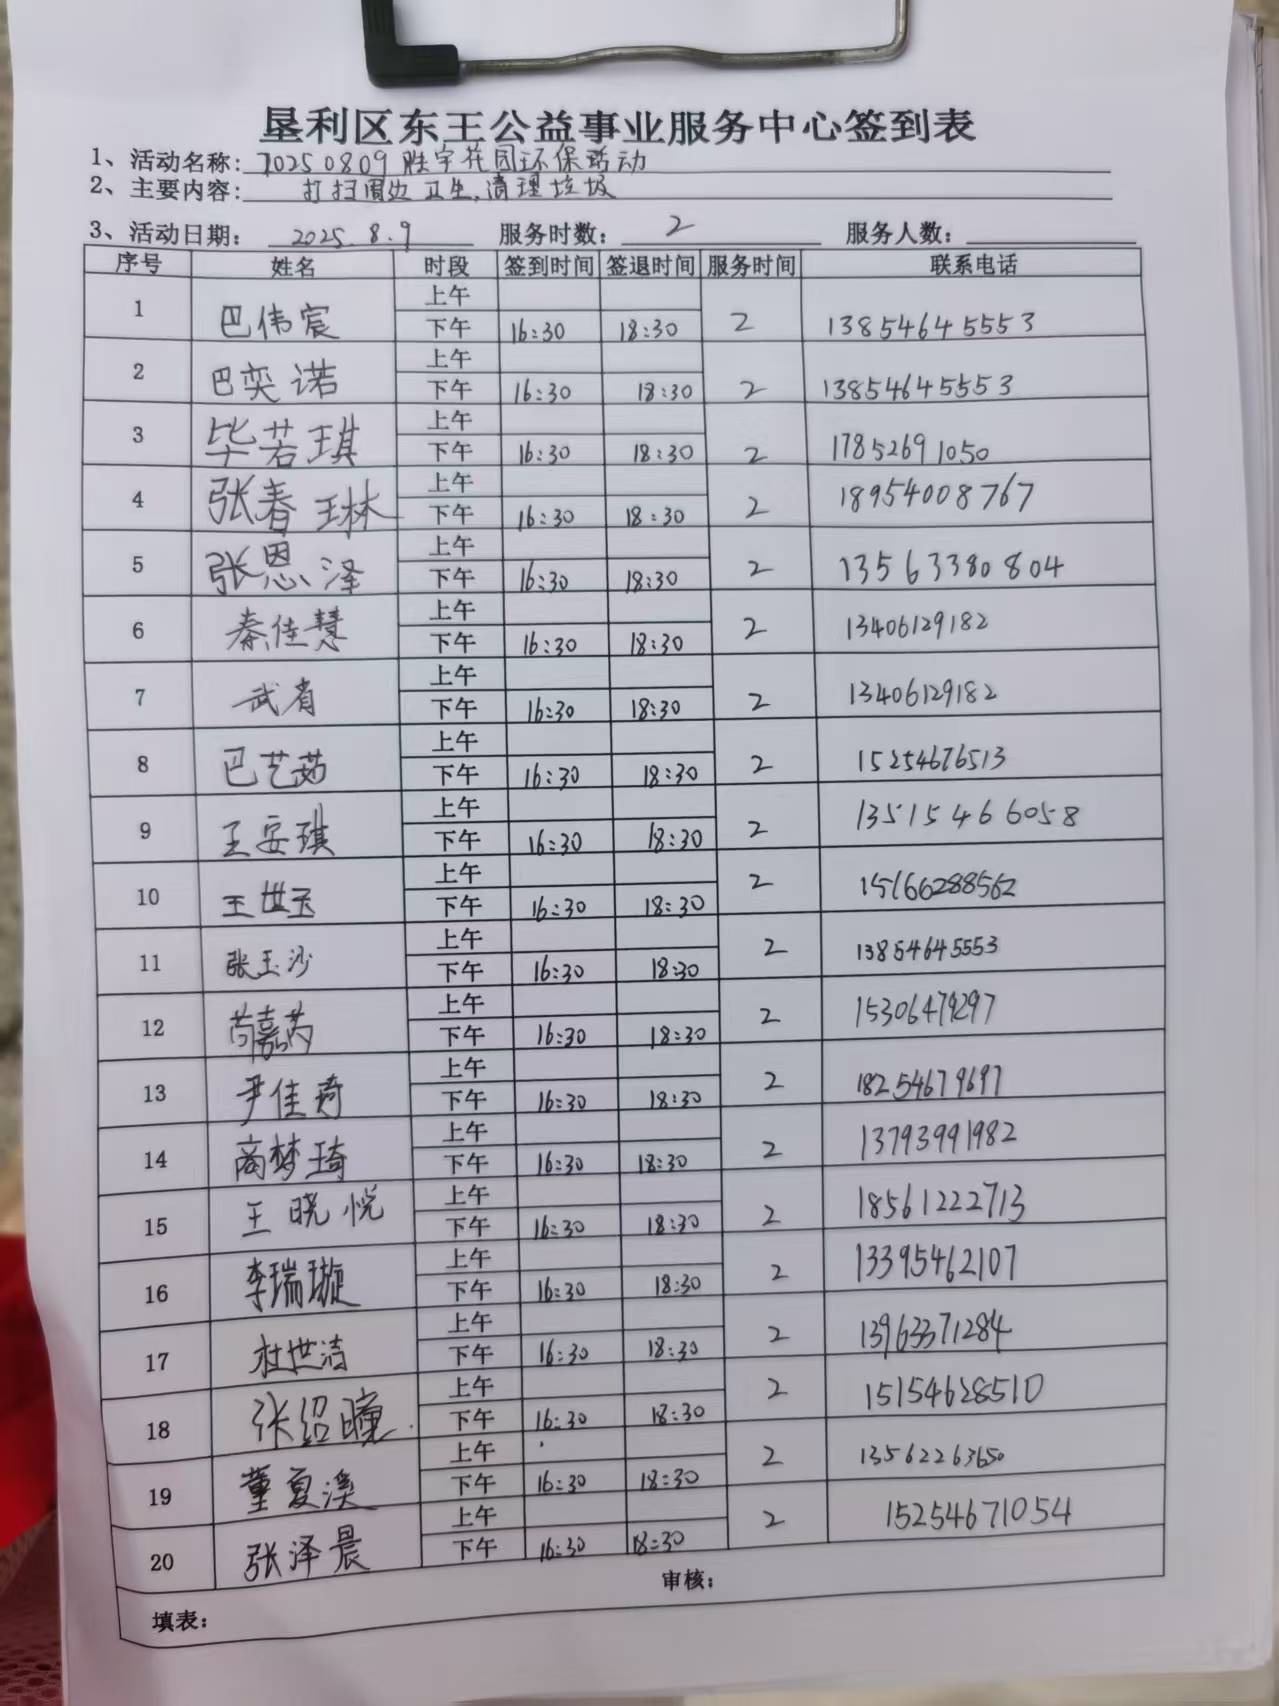 垦利区东王公益事业服务中心签到表
1、活动名称: 20250809胜宇花园环保活动
2、主要内容: 打扫周边卫生,清理垃圾
3、活动日期: 2025.8.9 服务时数: 2 服务人数:
序号 姓名 时段 签到时间 签退时间 服务时间 联系电话
上午
1 巴伟宸 下午 16:30 18:30 2 13854645553
上午
2 巴奕诺 下午 16:30 18:30 2 13854645553
上午
3 毕若琪 下午 16:30 18:30 2 17852691050
上午
4 张春琳 下午 16:30 18:30 2 18954008767
上午
5 张恩泽 下午 16:30 18:30 2 13563380804
上午
6 秦佳慧 下午 16:30 18:30 2 13406129182
上午
7 武肖 下午 16:30 18:30 2 13406129182
上午
8 巴艺茹 下午 16:30 18:30 2 15254676513
上午
9 王安琪 下午 16:30 18:30 2 13515466058
上午
10 王世玉 下午 16:30 18:30 2 15166288562
上午
11 张玉沙 下午 16:30 18:30 2 13854645553
上午
12 苟嘉芮 下午 16:30 18:30 2 15306479297
上午
13 尹佳琦 下午 16:30 18:30 2 18254679697
上午
14 商梦琦 下午 16:30 18:30 2 13793991982
上午
15 王晓悦 下午 16:30 18:30 2 18561222713
上午
16 李瑞璇 下午 16:30 18:30 2 13395462107
上午
17 杜世洁 下午 16:30 18:30 2 13963371284
上午
18 张绍瞳 下午 16:30 18:30 2 15154628510
上午
19 董夏溪 下午 16:30 18:30 2 13562263650
上午
20 张泽晨 下午 16:30 18:30 2 15254671054
填表: 审核: